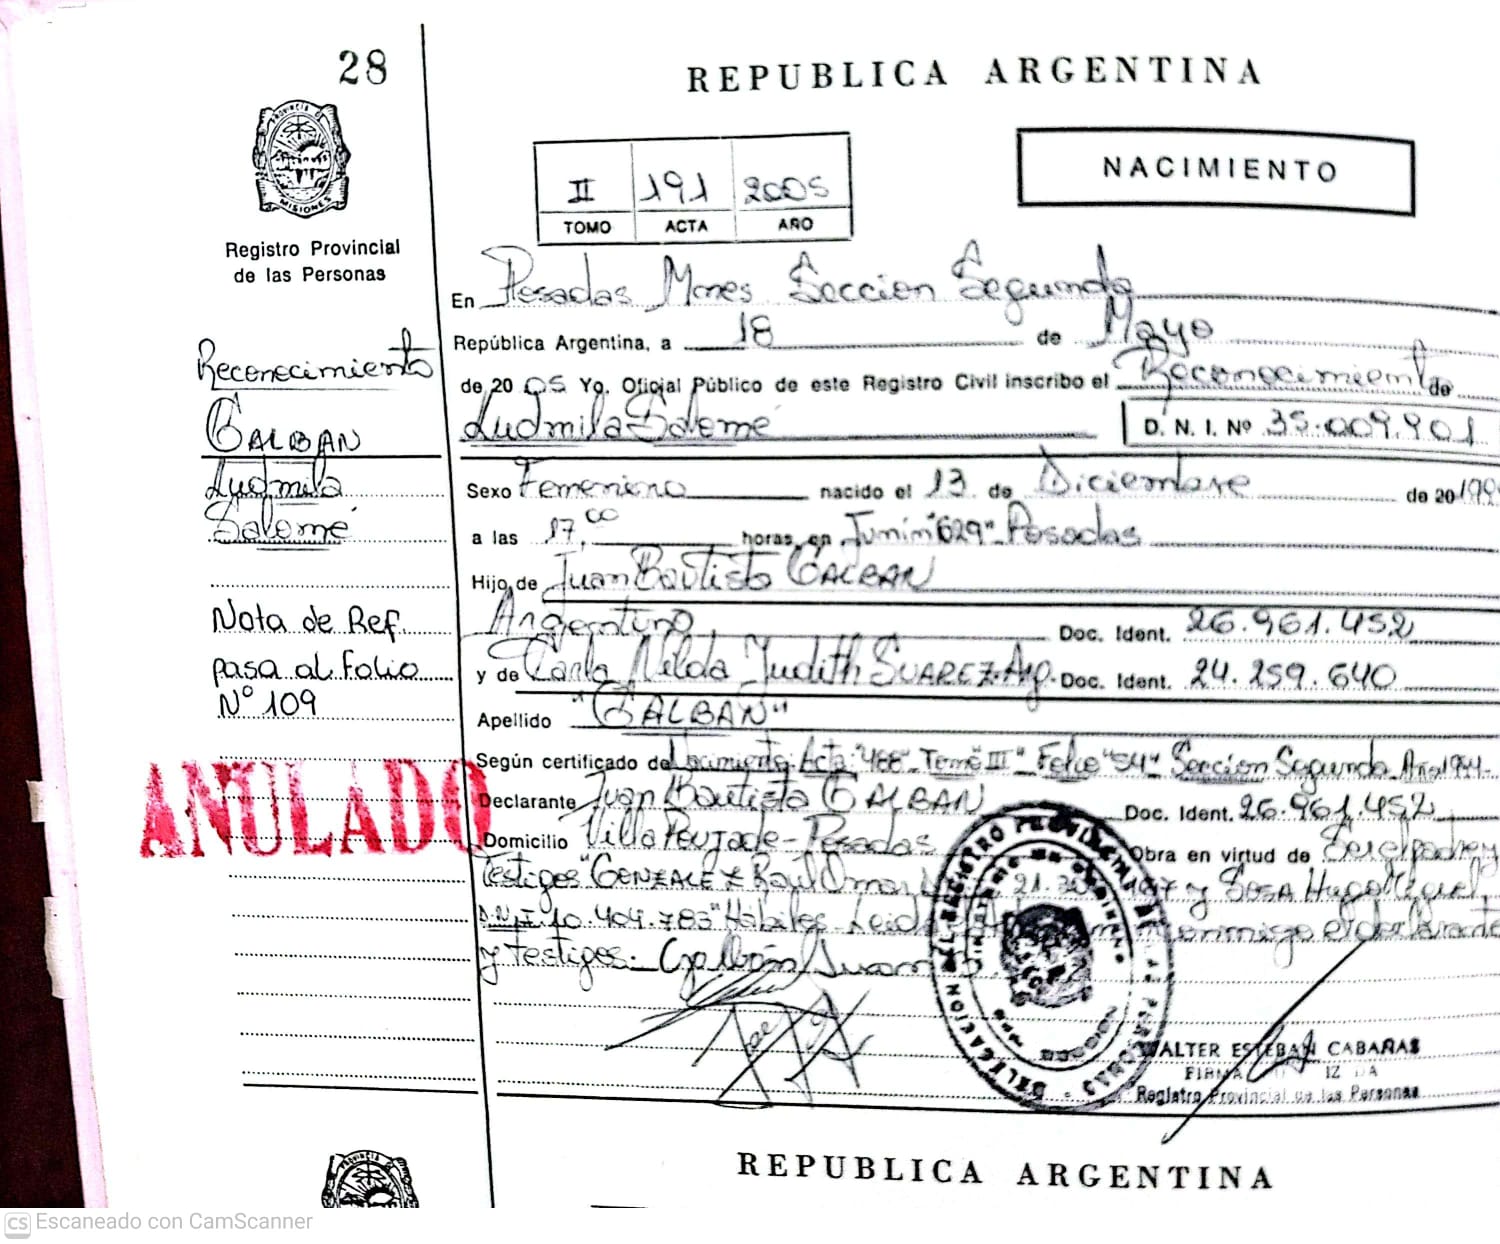 28
REPUBLICA ARGENTINA
PROVINCIA DE
MISIONES
Registro Provincial
de las Personas
II 191 2005
TOMO ACTA AÑO
NACIMIENTO
En Posadas Mnes. Seccion Segunda
República Argentina, a 18 de Mayo
de 20 05 Yo, Oficial Público de este Registro Civil inscribo el Reconocimiento de
Ludmila Salomé D. N. I. Nº 35.009.901
Sexo Femenino nacido el 13 de Diciembre de 20
a las 17,00 horas, en Junin "629" Posadas
Hijo de Juan Bautista GALBAN
Argentino Doc. Ident. 26.961.452
y de Carla Nilda Judith SUAREZ-Arg. Doc. Ident. 24.259.640
Apellido "GALBAN"
Según certificado de Nacimiento Acta: "488" Tomo "III" Folio "54" Seccion Segunda Año
Declarante Juan Bautista GALBAN Doc. Ident. 26.961.452
Domicilio Villa Poujade - Posadas Obra en virtud de Ser el padre y
Testigos "GONZALEZ Raúl Omar 21. y SOSA Hugo
D.N.I. 10.404.783" Hábiles. Leida conmigo el declarante
y testigos. Galbán Juan
Reconocimiento
GALBAN
Ludmila
Salomé
Nota de Ref.
pasa al Folio
Nº 109
ANULADO
DELEGACION REGISTRO PROVINCIAL DE PERSONAS
WALTER ESTEBAN CABAÑAS
FIRMA
Registro Provincial de las Personas
REPUBLICA ARGENTINA
PROVINCIA
CS Escaneado con CamScanner